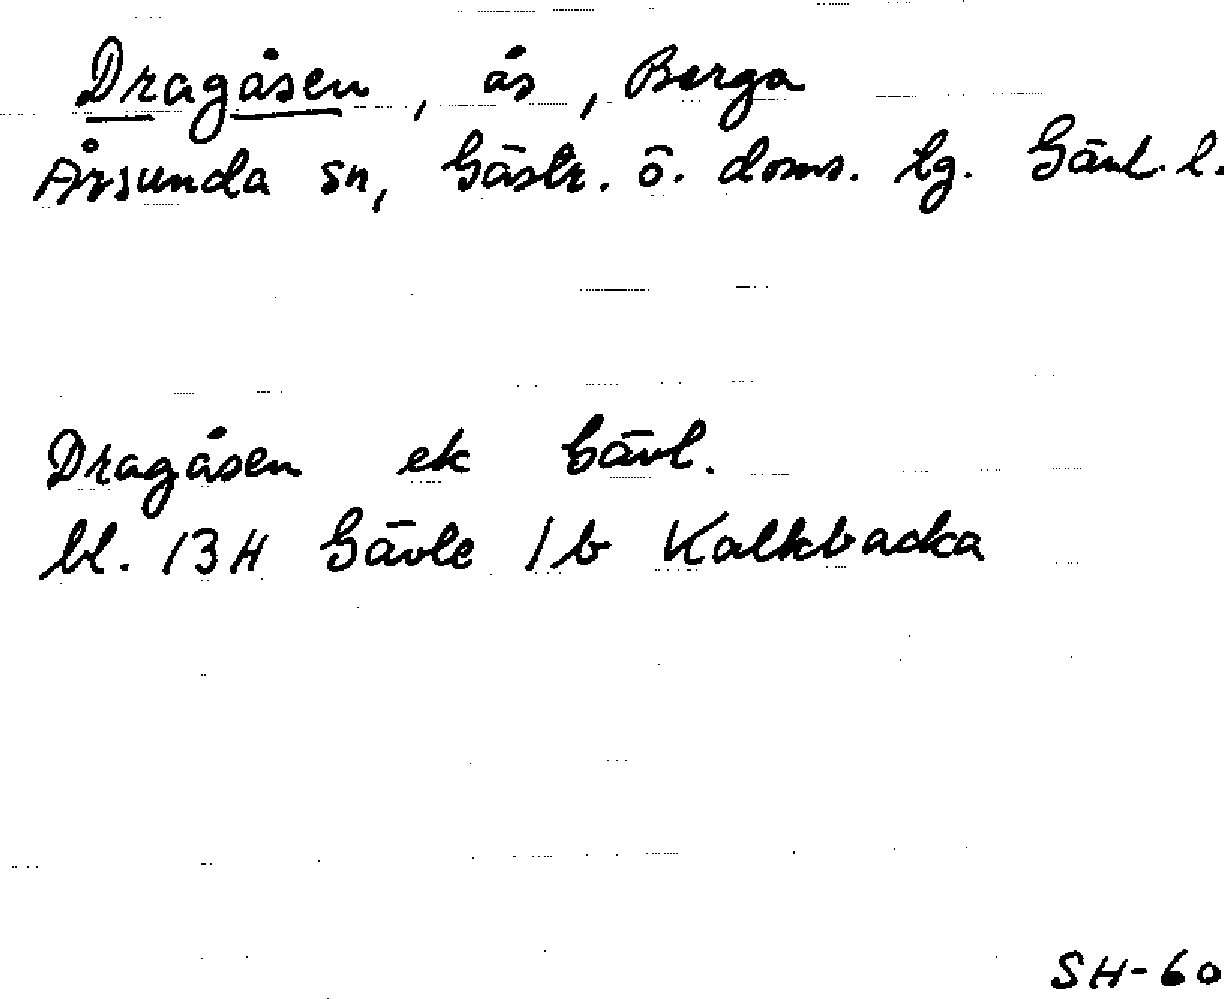 Dragåsen, ås, Berga
Årsunda sn, Gästr. ö. doms. tg. Gävl. l.
Dragåsen ek Gävl.
bl. 13H Gävle 1b Kalkbacka
SH-60